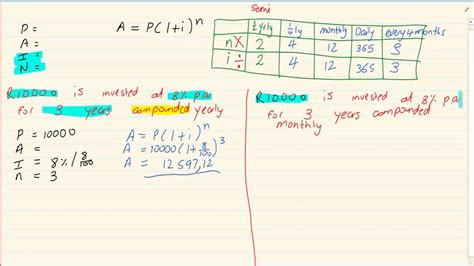 Semi
½ yrly ¼ yrly monthly Daily every 4 months
n X 2 4 12 365 3
i ÷ 2 4 12 365 3
P =
A =
I =
N =
A = P(1+i)^n
R10000 is invested at 8% p.a
for 3 years compounded yearly
P = 10000
A =
I = 8% / 8/100
n = 3
A = P(1+i)^n
A = 10000(1+8/100)^3
A = 12 597,12
R10000 is invested at 8% p.a
for 3 years compounded
monthly